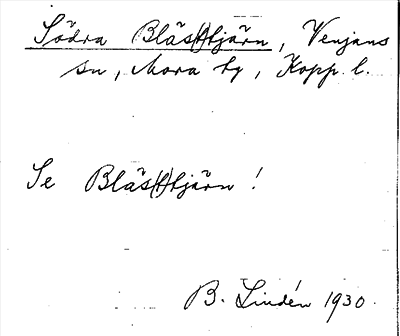 Södra Bläs(t)tjärn, Venjans
sn, Mora tg, Kopp. l.
Se Bläs(t)tjärn!
B. Lindén 1930.